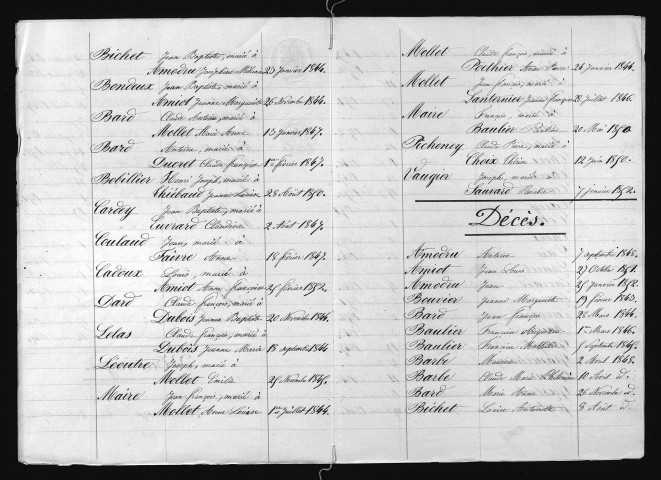 Bichet Jean Baptiste, marié à
Amedru Joséphine Mélanie 23 Janvier 1844.
Bondeux Jean Baptiste, marié à
Amiot Jeanne Marguerite 26 Novembre 1844.
Bard Claude Antoine, marié à
Mollet Marie Anne 13 Janvier 1847.
Bard Antoine, marié à
Ducret Claude françoise 1er février 1847.
Bobillier Henri Joseph, marié à
Thiébaud Jeanne Louise 28 Août 1850.
Cardey Jean Baptiste, marié à
Cuérard Claudine 2 Août 1847.
Coulaud Jean, marié à
Faivre Anne 18 février 1847.
Cadoux Louis, marié à
Amiot Anne françoise 25 février 1852.
Dard Claude françois, marié à
Dubois Jeanne Baptiste 20 Novembre 1844.
Lelas Claude françois, marié à
Dubois Jeanne Marie 18 septembre 1844
Léoutre Joseph, marié à
Mollet Emilie 25 Novembre 1845.
Maire Jean françois, marié à
Mollet Anne Louise 1er Juillet 1844.
Mollet Claude françois, marié à
Pothier Anne Pierre 24 Janvier 1844.
Mollet Jean françois, marié à
Santernier Jeanne françoise 28 Juillet 1846.
Maire François, marié à
Bautier 20 Mai 1850
Picheney Claude Pierre, marié à
Choix 12 Juin 1850.
Vaugier Joseph, marié à
Sauvard 7 Janvier 1852.
Décès.
Amedru Antoine 7 septembre 1848.
Amiot Jean Louis 27 Octobre 1851.
Amedru Jean 25 Janvier 1852.
Bouvier Jeanne Marguerite 19 février 1843.
Bard Jean françois 28 Mars 1844.
Bautier Francine 1er Mars 1846.
Bautier Francine 5 Septembre 1845.
Barbe Maurice 2 Avril 1848.
Barbe Claude Marie 10 Avril d.
Bard Marie Anne 26 Novembre d.
Bichet Louise Antoinette 8 Août d.